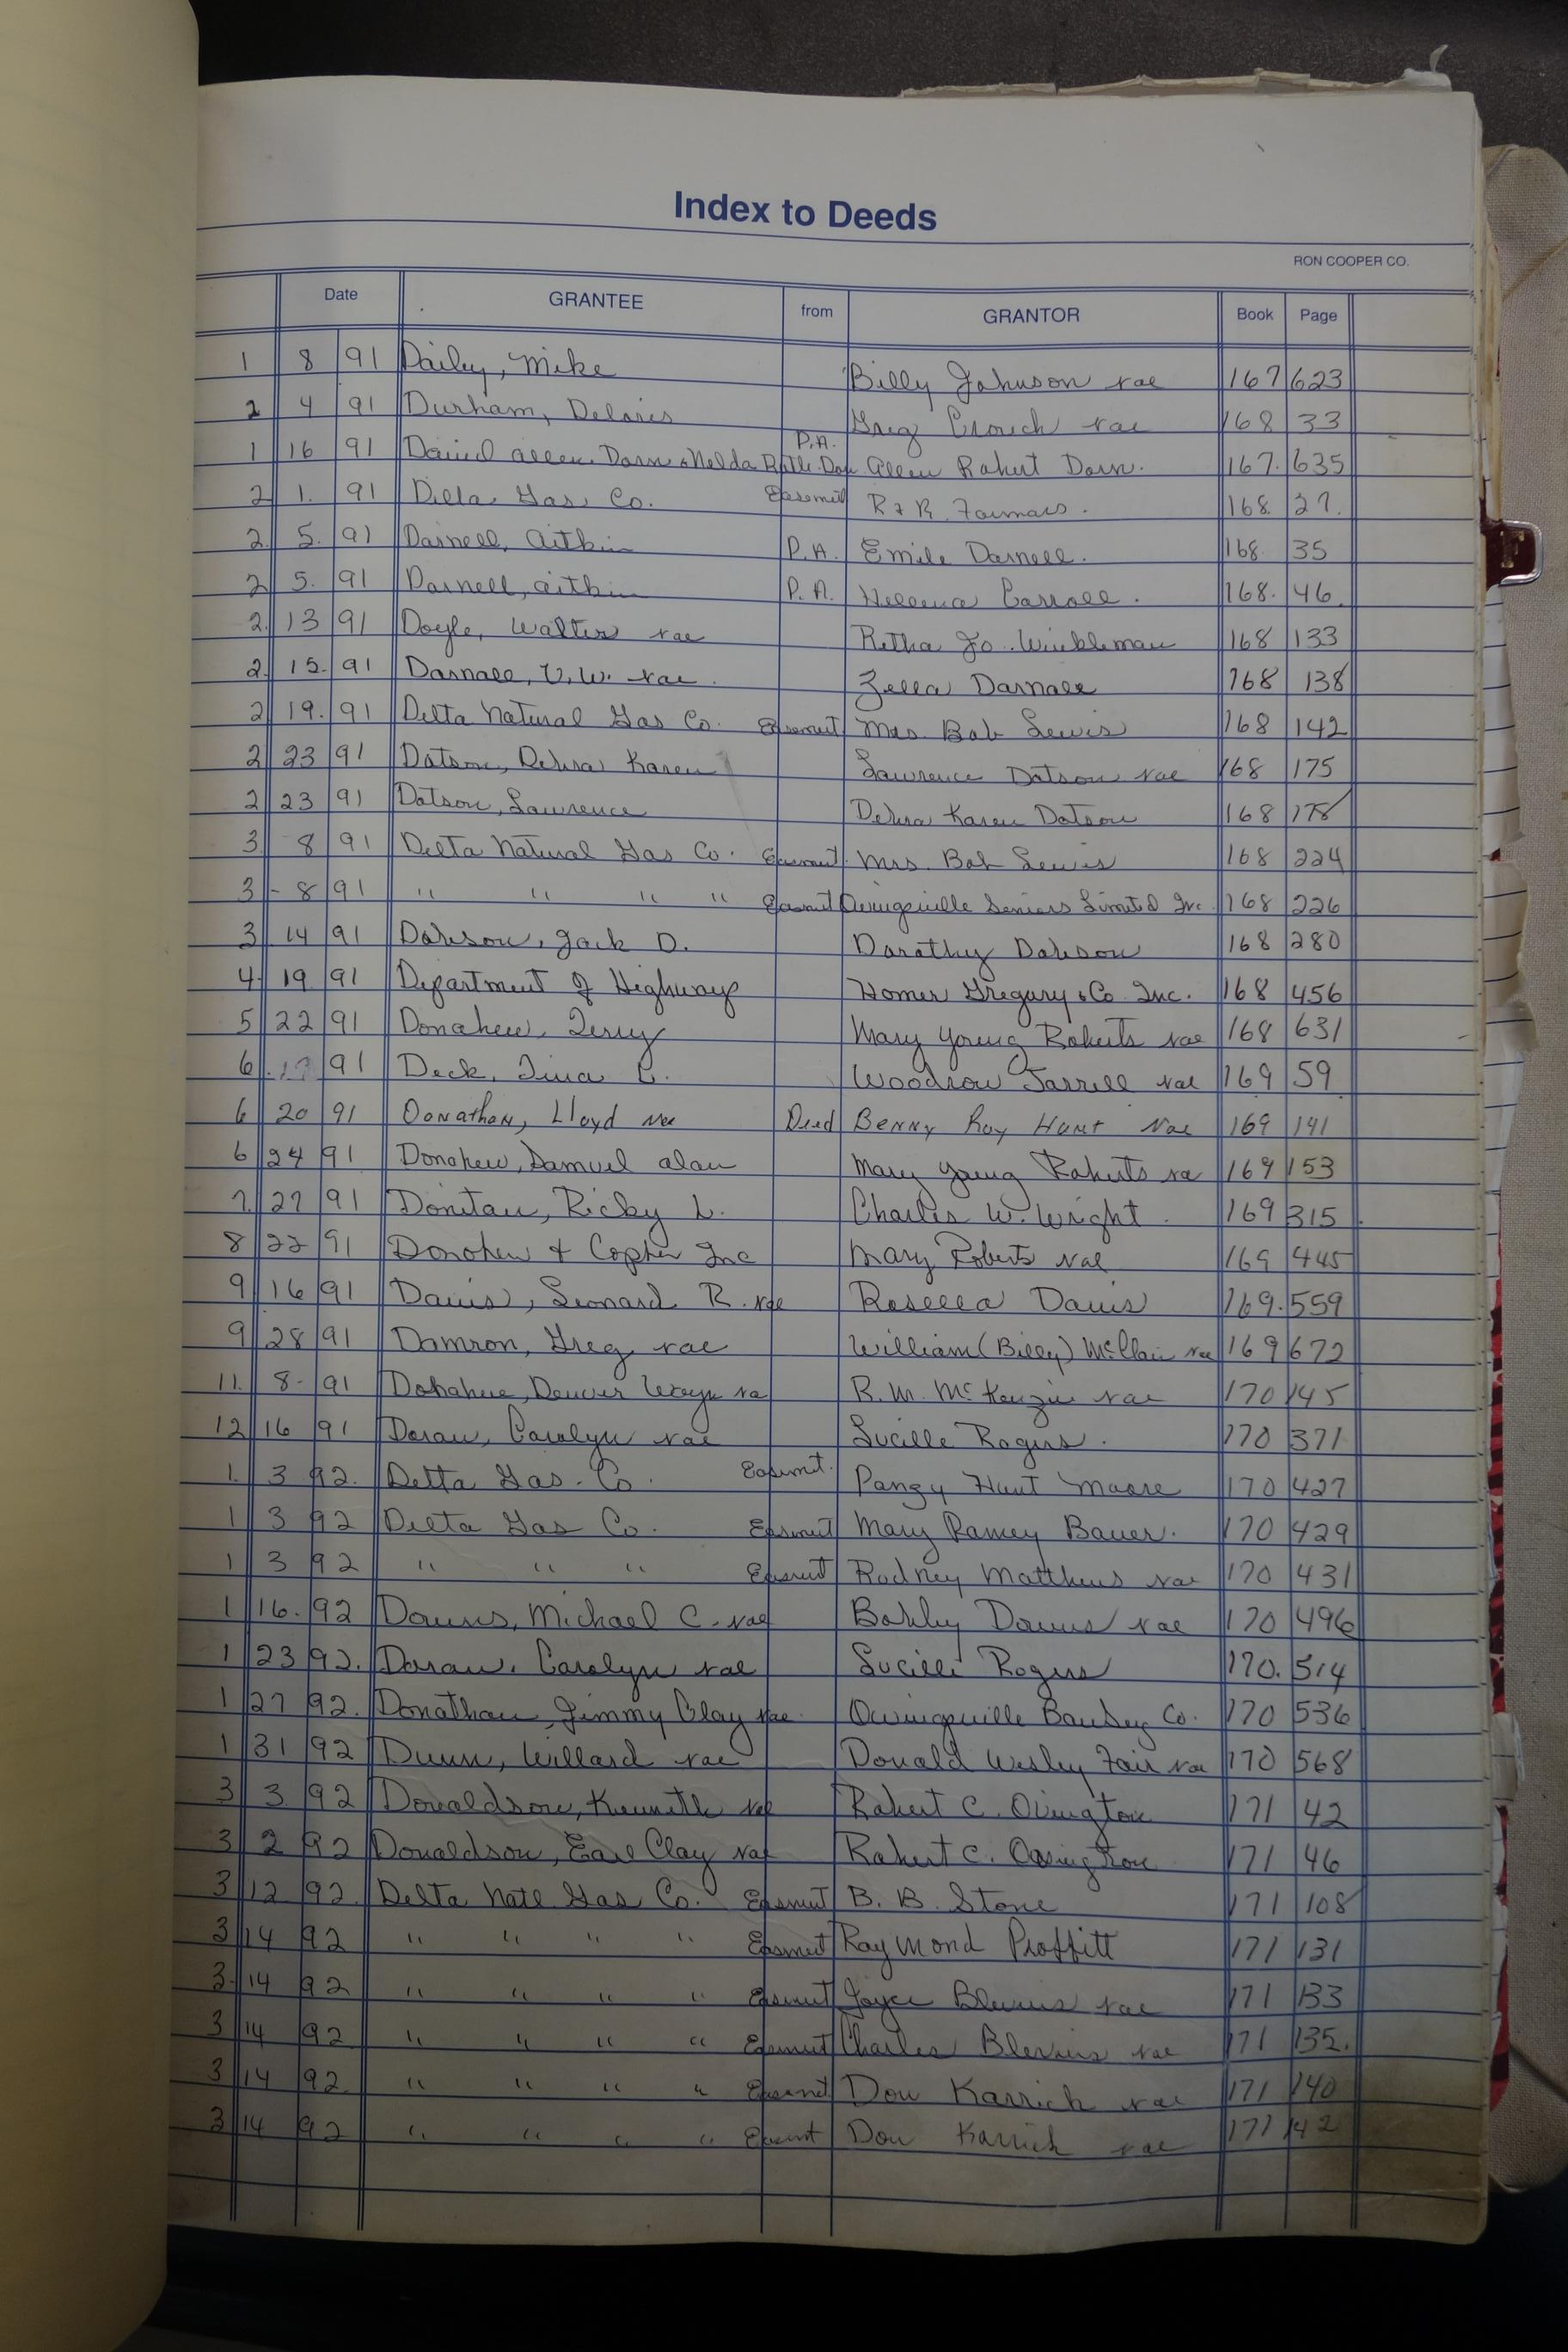 Index to Deeds
RON COOPER CO.
Date GRANTEE from GRANTOR Book Page
1 8 91 Dailey, Mike Billy Johnson val 167 623
2 4 91 Durham, Deloris Greg Crouch val 168 33
1 16 91 Daniel Allen Dorn & Nelda P.A. Allen Robert Dorn. 167. 635
2 1. 91 Delta Gas Co. Easemt R & R Farmars. 168. 27.
2. 5. 91 Darnell, Aitkin P.A. Emile Darnell. 168. 35
2 5. 91 Darnell, Aitkin P.A. Carroll. 168. 46.
2. 13 91 Doyle, Walter val Retha Jo. Winkleman 168 133
2. 15. 91 Darnall, V. W. val. Zella Darnall 168 138
2 19. 91 Delta Natural Gas Co. Easemet Mrs. Bob Lewis 168 142
2 23 91 Dotson, Debra Karen Lawrence Dotson val 168 175
2 23 91 Dotson, Lawrence Debra Karen Dotson 168 178
3 8 91 Delta Natural Gas Co. Easemet. Mrs. Bob Lewis 168 224
3 - 8 91 " " " " Easmet Owingsville Seniors Limited Inc. 168 226
3 14 91 Dobson, Jack D. Dorothy Dobson 168 280
4 19 91 Department of Highways Homer Gregory & Co. Inc. 168 456
5 22 91 Donahew, Terry Mary Young Roberts val 168 631
6 91 Deck, Tina C. Woodrow Jarrell val 169 59
6 20 91 Donathan, Lloyd val Deed Benny Ray Hunt val 169 141
6 24 91 Donahew, Samuel Alan Mary Young Roberts va 169 153
7. 27 91 Donitan, Ricky L. Charles W. Wright. 169 315
8 22 91 Donohew & Copher Inc Mary Roberts val 169 445
9 16 91 Davis, Leonard R. val Rosella Davis 169. 559
9 28 91 Damron, Greg val William (Billy) McClain val 169 672
11. 8- 91 Donahue, Denver Wayne va R. M. McKenzie val 170 145
12 16 91 Doran, Carolyn val Lucille Rogers. 170 371
1. 3 92. Delta Gas. Co. Easemt. Panzy Hunt Moore 170 427
1 3 92 Delta Gas Co. Easmet Mary Ramey Bauer. 170 429
1 3 92 " " " Easmet Rodney Matthews val 170 431
1 16. 92 Downs, Michael C. val Bobby Downs val 170 496
1 23 92. Doran, Carolyn val Lucille Rogers 170. 514
1 27 92. Donathan, Jimmy Clay val. Owingsville Banking Co. 170 536
1 31 92 Dunn, Willard val Donald Wesley Fair val 170 568
3 3 92 Donaldson, Kenneth val Robert C. Ovington 171 42
3 2 92 Donaldson, Earl Clay val Robert C. Ovington 171 46
3 12 92. Delta Natl. Gas Co. Easmet B. B. Stone 171 108
3 14 92 " " " " Easmet Raymond Proffitt 171 131
3. 14 92 " " " " Easmet Joyce Blevins val 171 133
3 14 92 " " " " Easmet Charles Blevins val 171 135.
3 14 92. " " " " Easmet Don Karrick val 171 140
3 14 92 " " " " Easmt Don Karrick val 171 142